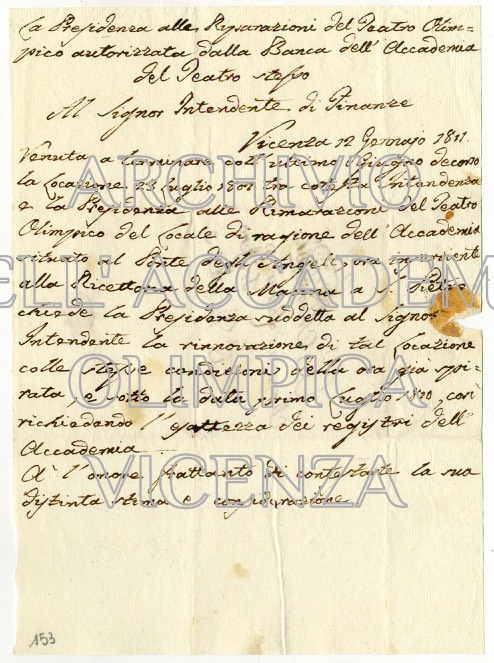 La Presidenza alle Riparazioni del Teatro Olim-
pico autorizzata dalla Banca dell' Accademia
del Teatro stesso
Al Signor Intendente di Finanze
Vicenza 12 Gennajo 1811.
Venuta a terminare coll' ultimo Giugno decorso
la Locazione 23 Luglio 1801 tra cotesta Intendenza
e la Presidenza alle Riparazioni del Teatro
Olimpico del Locale di ragione dell' Accademia
situato al Ponte degli Angeli, ora inserviente
alla Ricettoria della Macina a S. Pietro
chiede la Presidenza suddetta al Signor
Intendente la rinnovazione di tal Locazione
colle stesse condizioni della ora già spi-
rata, e sotto la data primo Luglio 1810, così
richiedendo l' esattezza dei registri dell'
Accademia
À l' onore frattanto di contestare la sua
distinta stima e considerazione
153
ARCHIVIO
DELL' ACCADEMIA
OLIMPICA
VICENZA